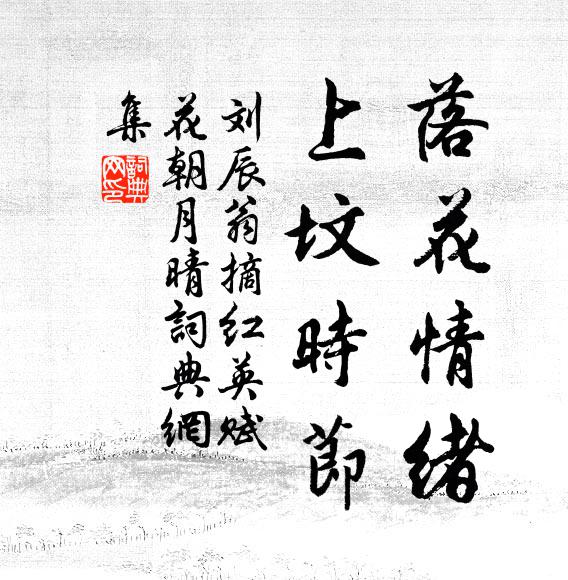 落花情緒
上坟時節
刘辰翁摘红英赋
花朝月晴詞典網
集
詞典网印